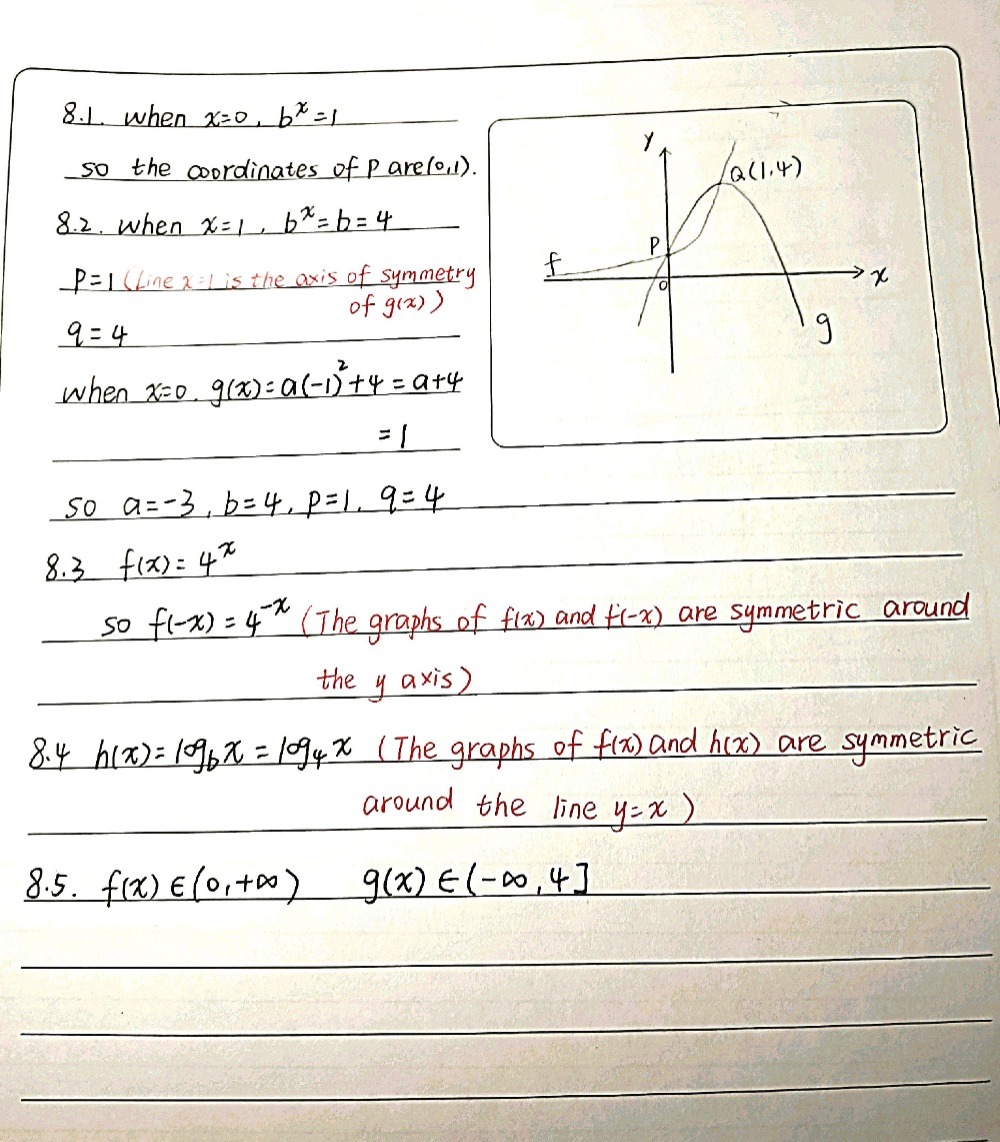 8.1. when x=0, bˣ=1
so the coordinates of P are(0,1).
8.2. when x=1, bˣ=b=4
P=1 (Line x=1 is the axis of symmetry
of g(x))
q=4
when x=0. g(x)=a(-1)²+4=a+4
=1
so a=-3, b=4, p=1, q=4
y
Q(1,4)
P
f
o
x
g
8.3 f(x)=4ˣ
so f(-x)=4⁻ˣ (The graphs of f(x) and f(-x) are symmetric around
the y axis)
8.4 h(x)=log_b x = log₄ x (The graphs of f(x) and h(x) are symmetric
around the line y=x)
8.5. f(x)∈(0,+∞) g(x)∈(-∞,4]